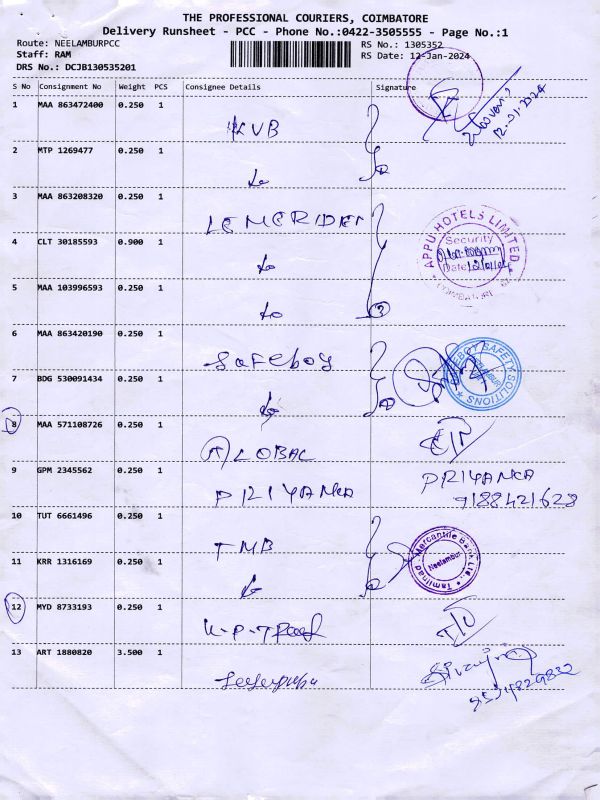 THE PROFESSIONAL COURIERS, COIMBATORE
Delivery Runsheet - PCC - Phone No.:0422-3505555 - Page No.:1
Route: NEELAMBURPCC RS No.: 1305352
Staff: RAM RS Date: 12-Jan-2024
DRS No.: DCJB130535201
S No Consignment No Weight PCS Consignee Details Signature
1 MAA 863472400 0.250 1 KVB
12-01-2024
2 MTP 1269477 0.250 1
3 MAA 863208320 0.250 1 LEMERIDEN
APPU HOTELS LIMITED
Security
Date
4 CLT 30185593 0.900 1
5 MAA 103996593 0.250 1
6 MAA 863420190 0.250 1 Safeboy
SAFETY SOLUTIONS
7 BDG 530091434 0.250 1
8 MAA 571108726 0.250 1 GLOBAL
9 GPM 2345562 0.250 1 PRIYANKA PRIYANKA
9188421628
10 TUT 6661496 0.250 1 TMB
Tamilnad Mercantile Bank Ltd.,
Neelambur
11 KRR 1316169 0.250 1
12 MYD 8733193 0.250 1
13 ART 1880820 3.500 1